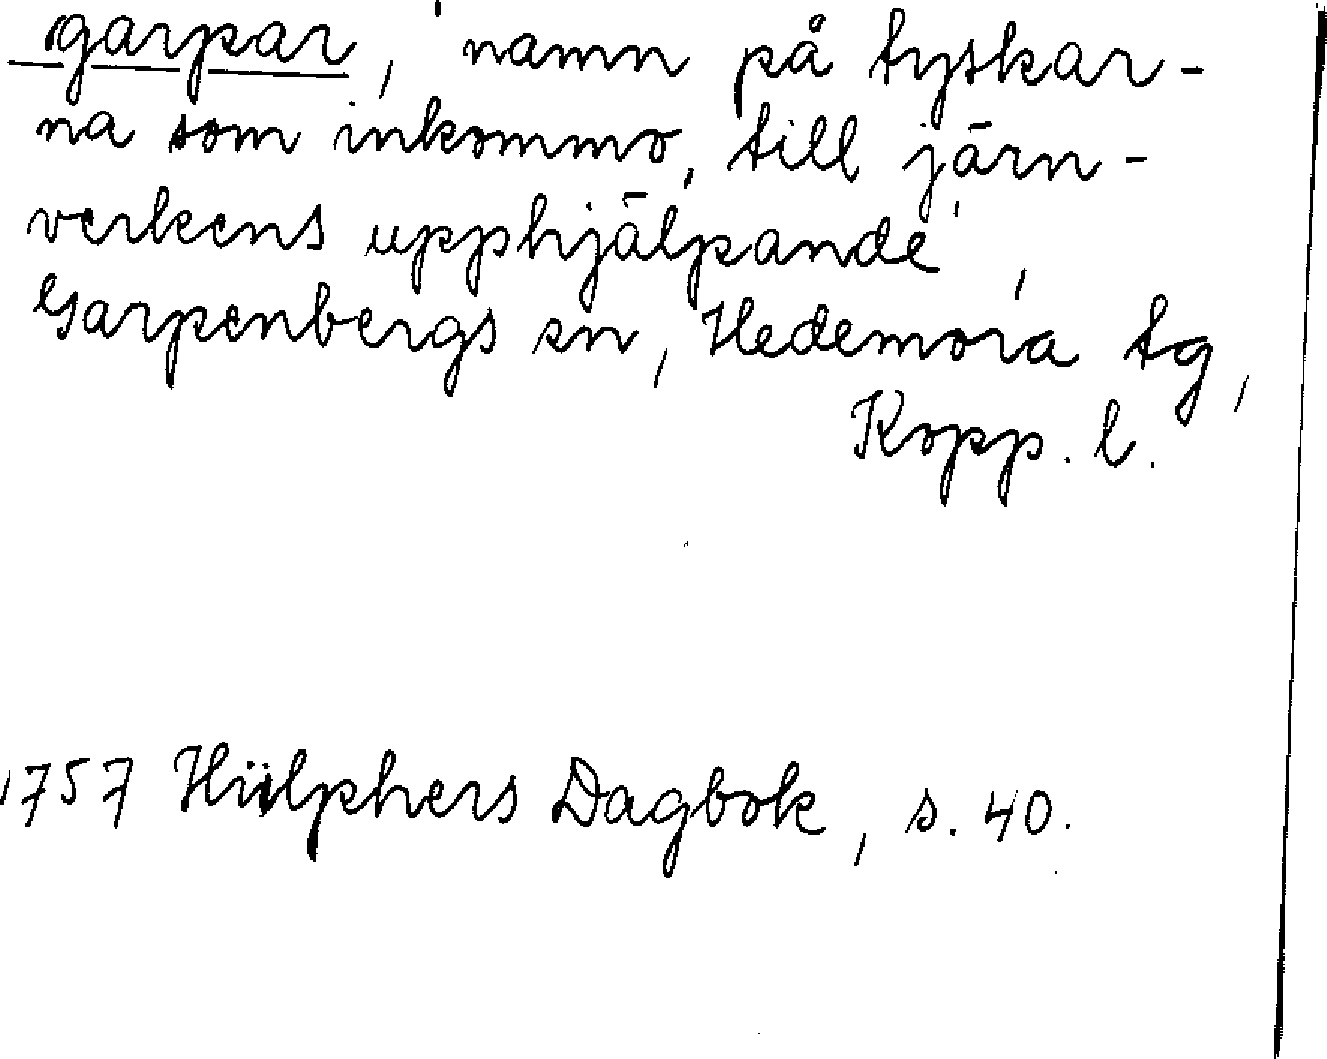 garpar, 'namn på tyskar-
na som inkommo, till järn-
verkens upphjälpande',
Garpenbergs sn, Hedemora tg,
Kopp. l.
1757 Hülphers Dagbok, s. 40.